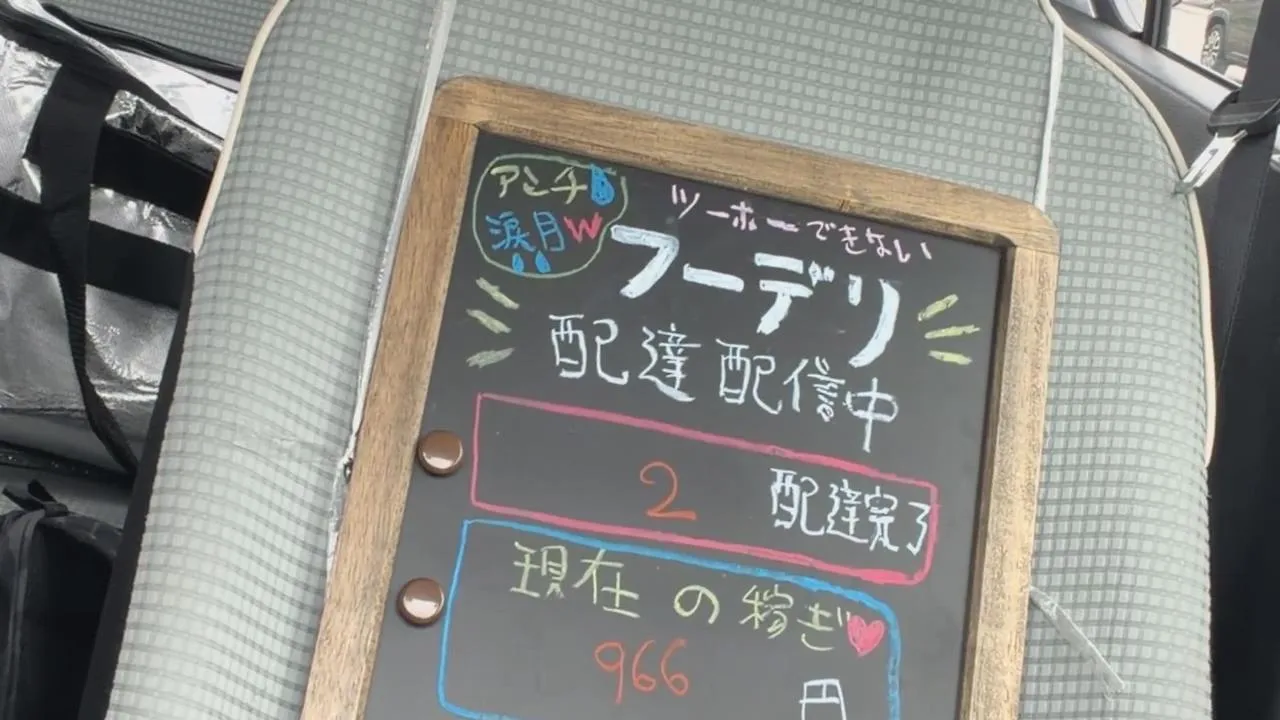 アンチ
涙月W
ツーホーできない
フーデリ
配達配信中
2 配達完了
現在の稼ぎ
966 円